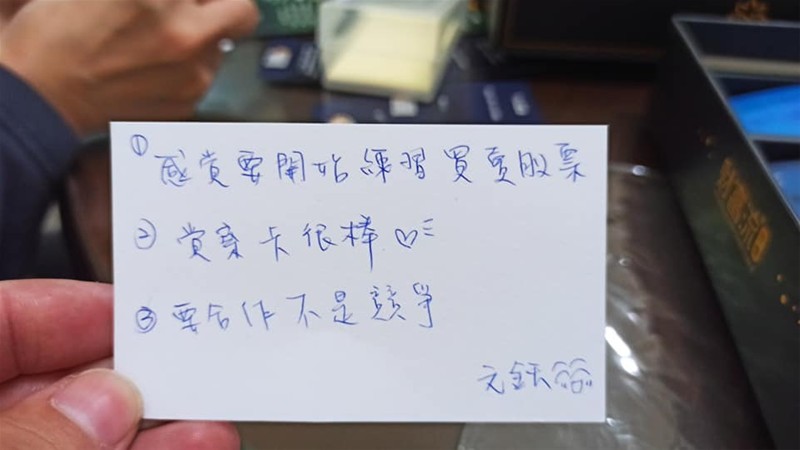 ① 感覺要開始練習買賣股票
② 覺察卡很棒♡
③ 要合作不是競爭
元